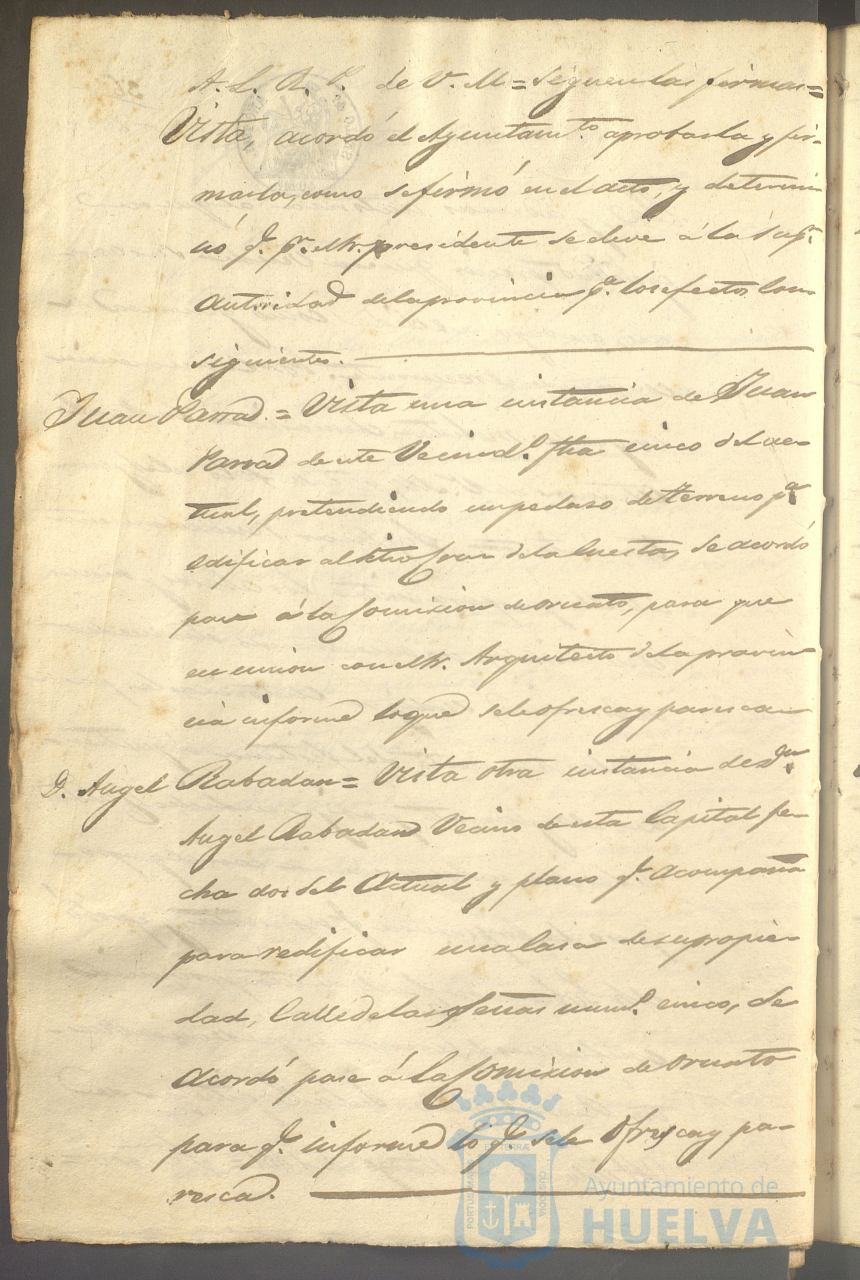 A. L. R. P. de V. M = Siguen las firmas =
Vista, acordó el Ayuntam.to aprobarla y fir-
marla, como se firmó en el acto, y determi-
nó q.e p.r el Sr. presidente se eleve á la Sup.r
Autoridad de la provincia p.a los efectos con-
siguientes.
Juan Parra = Vista una instancia de Juan
Parra de este Vecind.o fha cinco del ac-
tual, pretendiendo un pedaso de terreno p.a
edificar al sitio de la Cuesta, se acordó
pase á la Comision de ornato, para que
en union con el Sr. Arquitecto de la provin
cia informe lo que se le ofresca y paresca
D. Angel Rabadan = Vista otra instancia de D.n
Angel Rabadan Vecino de esta Capital fe-
cha dos del Actual y plano q.e acompaña
para redificar una Casa de su propie-
dad, Calle de las Señas num.o cinco, se
acordó pase á la Comision de ornato
para q.e informe lo q.e se le ofresca y pa-
resca.
PORTUS MARIS ET TERRÆ CUSTODIA
Ayuntamiento de
HUELVA